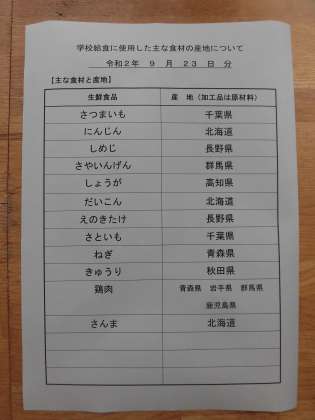 学校給食に使用した主な食材の産地について
令和2年 9 月 23 日 分
【主な食材と産地】
生鮮食品 産 地（加工品は原材料）
さつまいも 千葉県
にんじん 北海道
しめじ 長野県
さやいんげん 群馬県
しょうが 高知県
だいこん 北海道
えのきたけ 長野県
さといも 千葉県
ねぎ 青森県
きゅうり 秋田県
鶏肉 青森県 岩手県 群馬県
鹿児島県
さんま 北海道